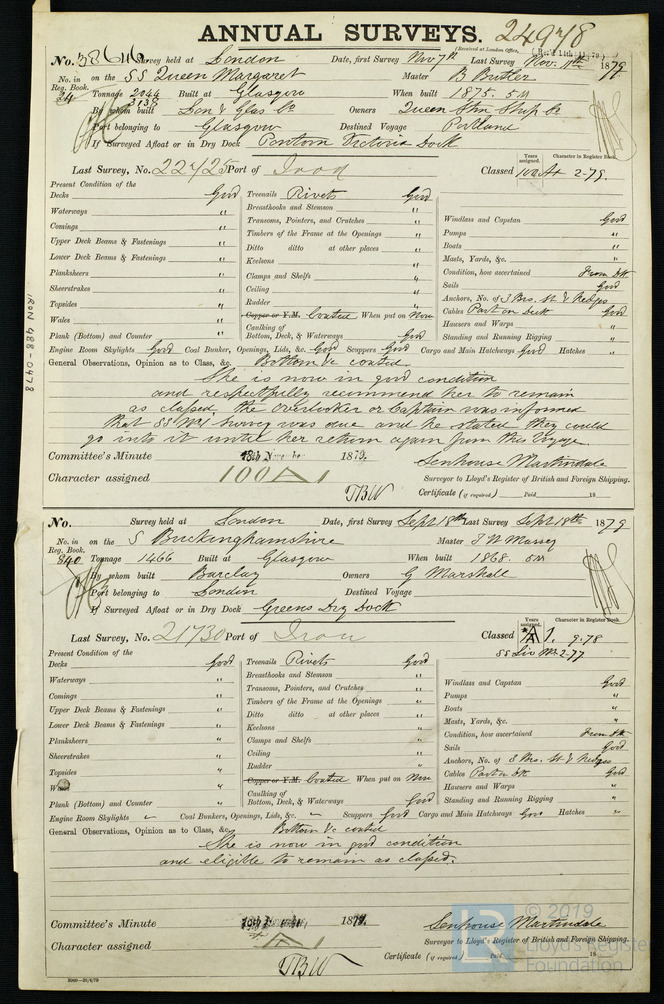 ANNUAL SURVEYS. 24978
(Received at London Office,
No. Survey held at London Date, first Survey Nov 7th Last Survey Nov. 11th 1879.
No. in Reg. Book. 24 on the SS Queen Margaret Master B Butler
Tonnage 2044 Built at Glasgow When built 1875. 5M
2138
By whom built Lon & Glas Co Owners Queen Stm Ship Co
Port belonging to Glasgow Destined Voyage Portland
If Surveyed Afloat or in Dry Dock Pontoon Victoria Dock
Last Survey, No. 22425 Port of Iron Classed 100A1 2-79.
Years assigned. Character in Register Book.
Present Condition of the
Decks Good Treenails Rivets Good
Waterways " Breasthooks and Stemson "
Comings " Transoms, Pointers, and Crutches " Windlass and Capstan Good
Upper Deck Beams & Fastenings " Timbers of the Frame at the Openings " Pumps "
Lower Deck Beams & Fastenings " Ditto ditto at other places " Boats "
Planksheers " Keelsons " Masts, Yards, &c. "
Sheerstrakes " Clamps and Shelfs " Condition, how ascertained From Dk
Topsides " Ceiling " Sails Good
Wales " Rudder " Anchors, No. of 3 Brs. St & Kedges
Plank (Bottom) and Counter " Copper or Y.M. Coated When put on Now Cables Part on Deck Good
Caulking of Bottom, Deck, & Waterways Good Hawsers and Warps "
Standing and Running Rigging "
Engine Room Skylights Good Coal Bunker, Openings, Lids, &c. Good Scuppers Good Cargo and Main Hatchways Good Hatches "
General Observations, Opinion as to Class, &c. Bottom &c coated
She is now in good condition
and respectfully recommend her to remain
as classed. the overlooker or Captain was informed
that SS No1 Survey was due and he stated they could
go into it until her return again from this Voyage.
Committee's Minute 18th November 1879. Senhouse Martindale
Surveyor to Lloyd's Register of British and Foreign Shipping.
Character assigned 100A1
TBW Certificate (if required) Paid 18
No. Survey held at London Date, first Survey Sept 18th Last Survey Sept 18th 1879
No. in Reg. Book. 840 on the S Buckinghamshire Master J W Massey
Tonnage 1466 Built at Glasgow When built 1868. 5M
By whom built Barclay Owners G Marshall
Port belonging to London Destined Voyage
If Surveyed Afloat or in Dry Dock Greens Dry Dock
Last Survey, No. 21730 Port of Iron Classed A 1. 9.78
Years assigned. Character in Register Book.
SS Liv 2-77
Present Condition of the
Decks Good Treenails Rivets Good
Waterways " Breasthooks and Stemson "
Comings " Transoms, Pointers, and Crutches " Windlass and Capstan Good
Upper Deck Beams & Fastenings " Timbers of the Frame at the Openings " Pumps "
Lower Deck Beams & Fastenings " Ditto ditto at other places " Boats "
Planksheers " Keelsons " Masts, Yards, &c. "
Sheerstrakes " Clamps and Shelfs " Condition, how ascertained From Dk
Topsides " Ceiling " Sails Good
Wales " Rudder " Anchors, No. of 3 Brs. St & Kedges
Plank (Bottom) and Counter " Copper or Y.M. Coated When put on Now Cables Part on Dk. Good
Caulking of Bottom, Deck, & Waterways Good Hawsers and Warps "
Standing and Running Rigging "
Engine Room Skylights " Coal Bunkers, Openings, Lids, &c. " Scuppers Good Cargo and Main Hatchways Good Hatches "
General Observations, Opinion as to Class, &c. Bottom &c coated
She is now in good condition
and eligible to remain as classed.
Committee's Minute 1879. Senhouse Martindale
Surveyor to Lloyd's Register of British and Foreign Shipping.
Character assigned A1
TBW Certificate (if required) Paid 18
IRON 488-0478
© 2019
Lloyd's Register
Foundation